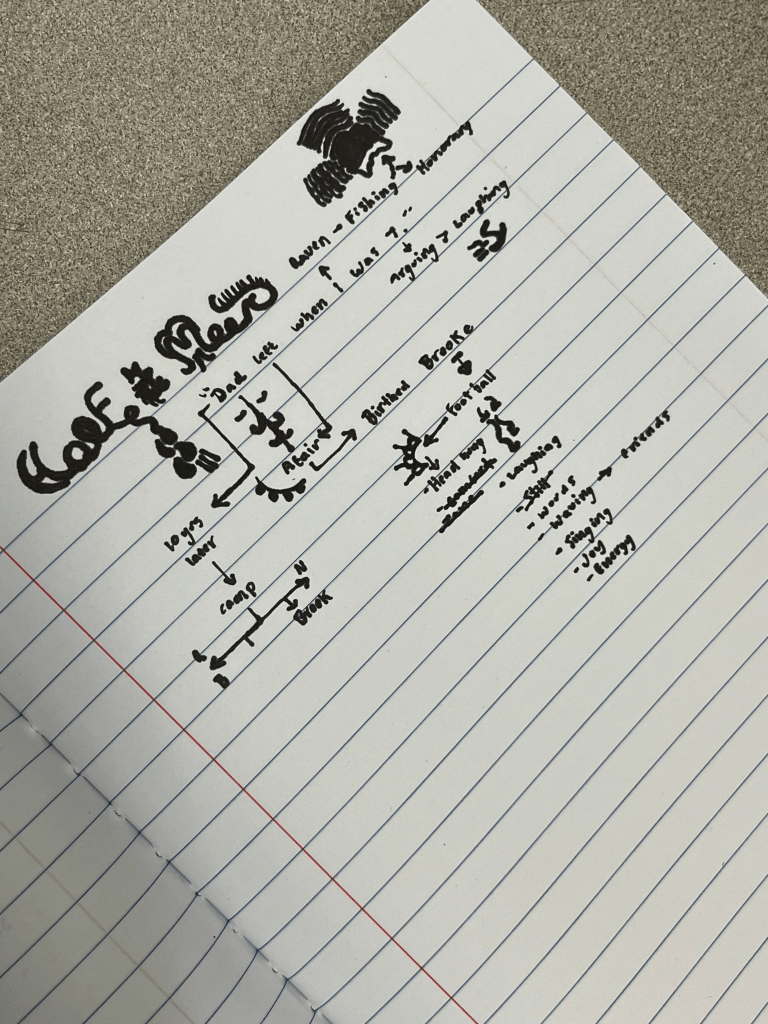 Half
Raven → Fishing → Honoring
"Dad left when I was 7."
Arguing > Laughing
Affair
Birthed Brooke
Football
- Head
- Laughing
- Still
- words
- waving → friends
- Singing
- Joy
- Energy
10 yrs
later
camp
N
Brook
R
B